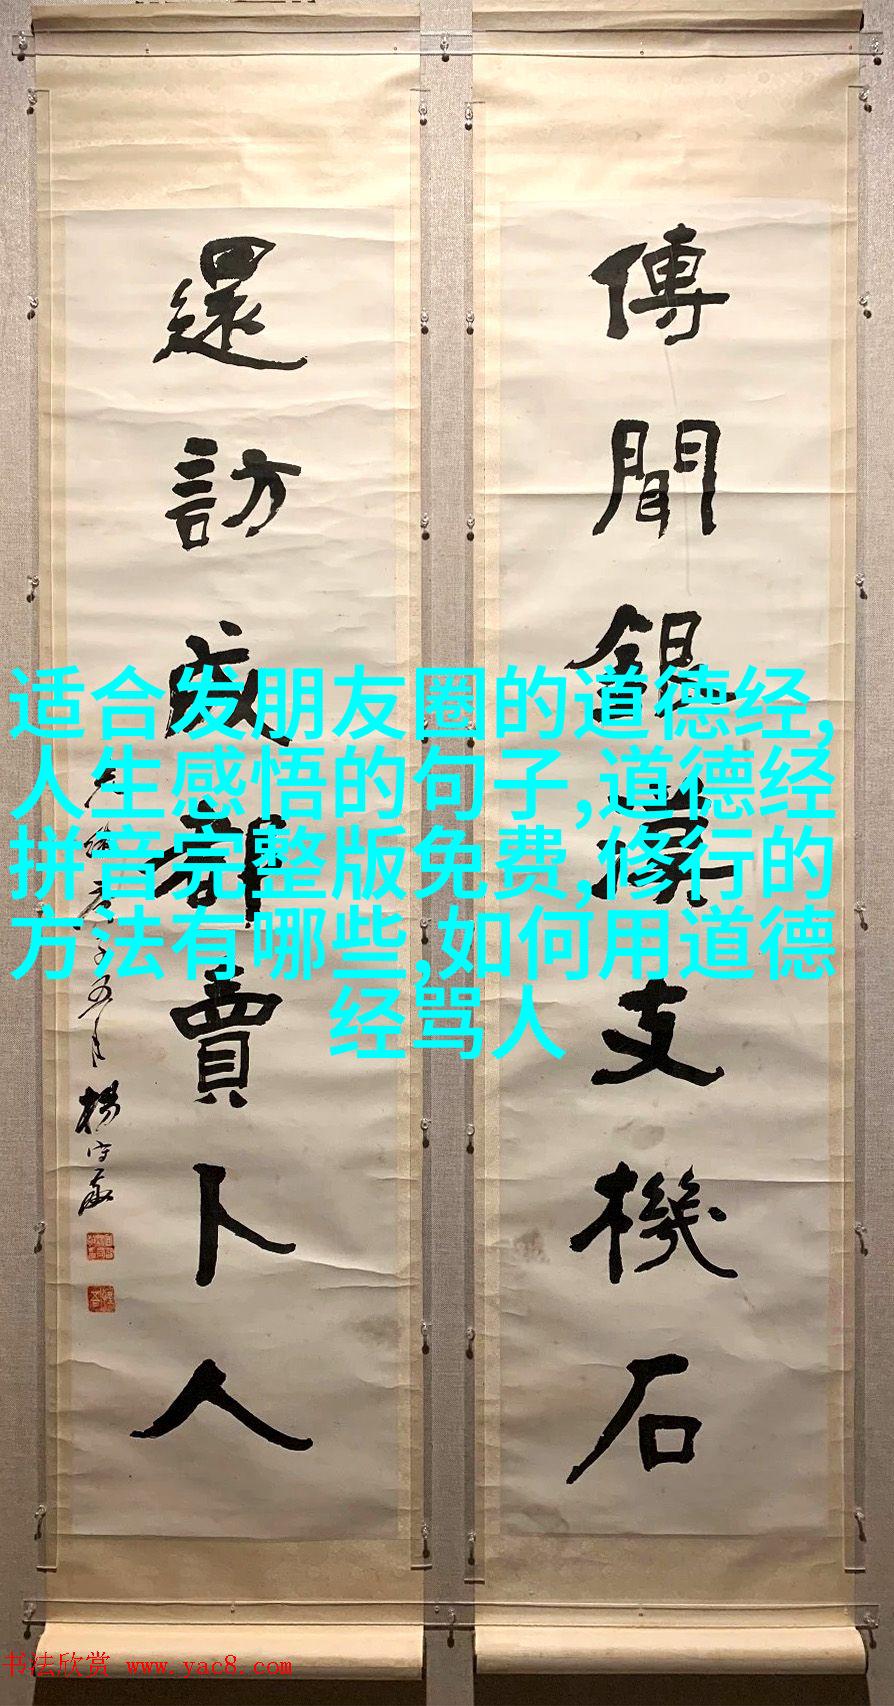 傳聞銀漢支機石
還訪成都賣卜人
光緒庚子五月楊守敬
适合发朋友圈的道德经,
人生感悟的句子,道德经
拼音完整版免费,修行的
方法有哪些,如何用道德
经骂人
书法欣赏 www.yac8.com